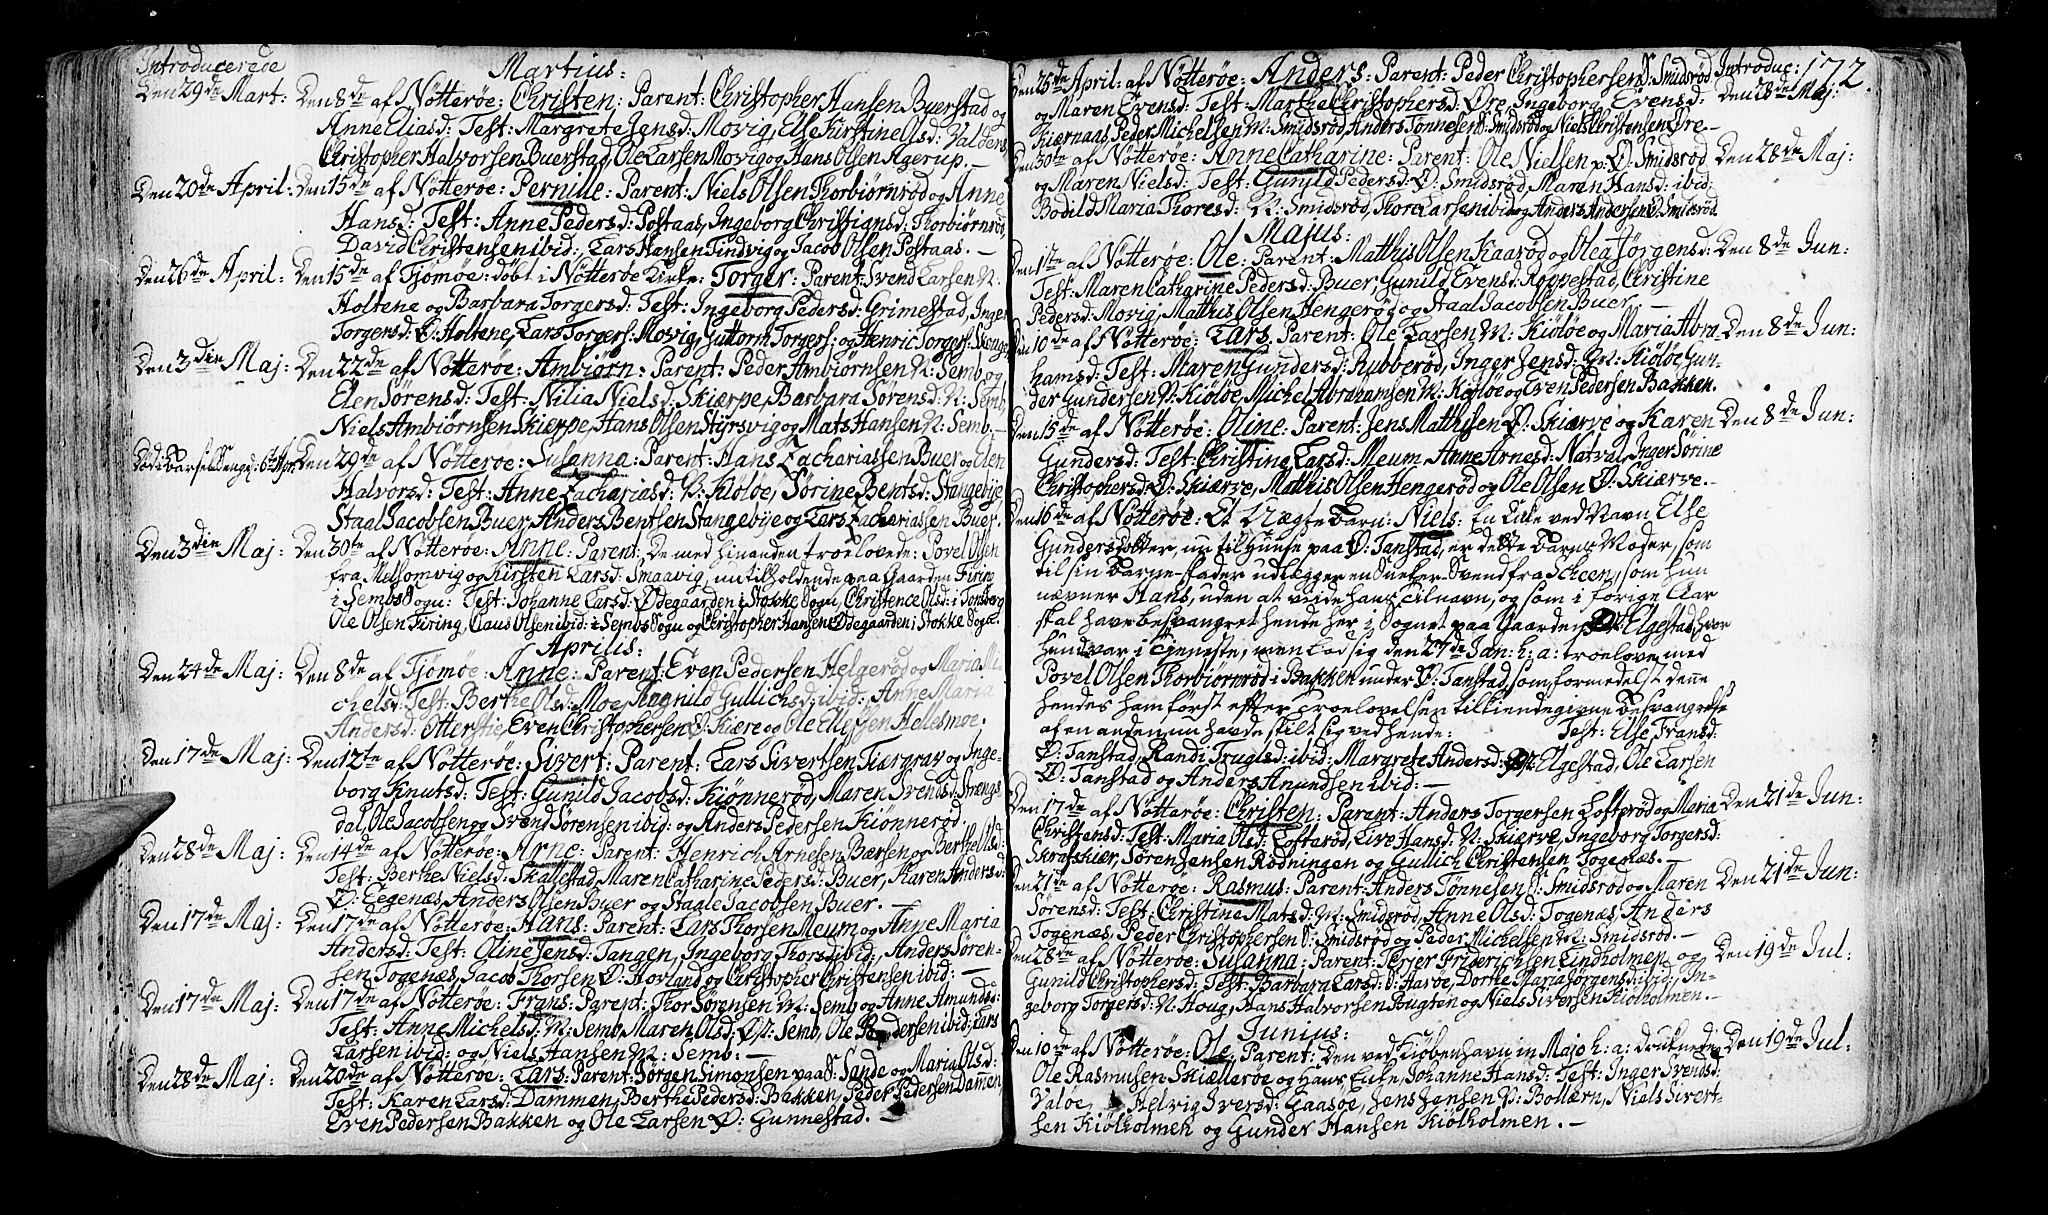 Introducerede
Martius:
Den 29de Mart: Den 8de af Nötteröe: Christen: Parent: Christopher Hansen Buerstad og
Anne Eliasd: Test: Margrete Jensd: Movig, Else Kirstine Olsd: Valöen,
Christopher Halvorsen Buerstad, Ole Larsen Movig og Hans Olsen Agerup. —
Den 20de April: Den 15de af Nötteröe: Pernille: Parent: Niels Olsen Thorbiörnröd og Anne
Hansd: Test: Anne Pedersd: Postaas, Ingeborg Christiansd: Thorbiörnröd,
David Christensen ibid: Lars Hansen Tindvig og Jacob Olsen Postaas. —
Den 26de April: Den 15de af Tjömöe: döbt i Nötteröe Kirke: Torger: Parent: Svend Larsen N:
Holtene og Barbara Torgersd: Test: Ingeborg Pedersd: Grimestad, Inger
Torgersd: Ø: Holtene, Lars Torgers: Movig, Guttorm Torgers: og Henric Torgers:
Den 3die Maj: Den 22de af Nötteröe: Ambiörn: Parent: Peder Ambiörnsen N: Semb og
Elen Sörensd: Test: Nilia Nielsd: Skiærpe, Barbara Sörensd: N: Semb,
Niels Ambiörnsen Skierpe, Hans Olsen Styrsvig og Mats Hansen N: Semb. —
Död i Barsel Senge d: 6te Apr: Den 29de af Nötteröe: Susanna: Parent: Hans Zachariassen Buer og Elen
Halvorsd: Test: Anne Zachariasd: N: Kiölöe, Sörine Bentsd: Stangebye
Staal Jacobsen Buer, Anders Bentsen Stangebye og Lars Zachariassen Buer.
Den 3die Maj: Den 30te af Nötteröe: Anne: Parent: De med hinanden troelovede: Povel Olsen
fra Melsomvig og Kirsten Larsd: Smaavig, nu tilholdende paa Gaarden Firing
i Sembs Sogn: Test: Johanne Larsd: Ødegaarden i Stokke Sogn, Christence Olsd: i Tonsberg
Ole Olsen Firing, Claus Olsen ibid: i Sembs Sogn og Christopher Hansen Ødegaarden i Stokke Sogn.
Aprilis:
Den 24de Maj: Den 8de af Tjömöe: Anne: Parent: Even Pedersen Helgeröd og Maria Mi-
chelsd: Test: Berthe Olsd: Moe, Ragnild Gullichsd: ibid: Anne Maria
Andersd: Otterstie, Even Christophersen Ø: Kiære og Ole Ellefsen Hellesmoe.
Den 17de Maj: Den 12te af Nötteröe: Sivert: Parent: Lars Sivertsen Tiærgrav og Inge-
borg Knutsd: Test: Gunild Jacobsd: Kiönneröd, Maren Svendsd: Strengs
dal, Ole Jacobsen og Svend Sörensen ibid: og Anders Pedersen Kiönneröd.
Den 28de Maj: Den 14de af Nötteröe: Arne: Parent: Henrich Arnesen Bærsen og Berthe Olsd:
Test: Berthe Nielsd: Skallestad, Maren Catharine Pedersd: Buer, Karen Andersd:
Ø: Eegenæs, Anders Olsen Buer og Staale Jacobsen Buer. —
Den 17de Maj: Den 17de af Nötteröe: Hans: Parent: Lars Thorsen Meum og Anne Maria
Andersd: Test: Oline Jensd: Tangen, Ingeborg Thorsd: ibid: Anders Sören-
sen Togenæs, Jacob Thorsen Ø: Hovland og Christopher Christensen ibid: —
Den 17de Maj: Den 17de af Nötteröe: Frans: Parent: Thor Sörensen M: Semb og Anne Amundsd:
Test: Anne Michelsd: M: Semb, Maren Olsd: Semb, Ole Pedersen ibid: Lars
Larsen ibid: og Niels Hansen M: Semb: —
Den 28de Maj: Den 20de af Nötteröe: Lars: Parent: Jörgen Simonsen paa S: Sande og Maria Olsd:
Test: Karen Larsd: Dammen, Berthe Pedersd: Bakken, Peder Pedersen Damen,
Even Pedersen Bakken og Ole Larsen Ø: Gunnestad. —
172.
Den 25de April: af Nötteröe: Anders: Parent: Peder Christophersen S: Smidsröd Introduc:
og Maren Evensd: Test: Marthe Christophersd: Øre, Ingeborg Evensd: Den 28de Maj:
Kiærnaas, Peder Michelsen M: Smidsröd, Anders Tönnesen S: Smidsröd og Niels Christensen Øre. —
Den 30te af Nötteröe: Anne Catharine: Parent: Ole Nielsen p: Ø: Smidsröd Den 28de Maj:
og Maren Nielsd: Test: Gunild Pedersd: Ø: Smidsröd, Maren Hansd: ibid:
Bodild Maria Thoresd: N: Smidsröd, Thore Larsen ibid: og Anders Andersen Ø: Smidsröd.
Majus:
Den 1te af Nötteröe: Ole: Parent: Matthis Olsen Kaaröd og Olea Jörgensd: Den 8de Jun:
Test: Maren Catharine Pedersd: Buer, Gunild Evensd: Röppestad, Christine
Pedersd: Movig, Matthis Olsen Hengeröd og Staal Jacobsen Buer. —
Den 10de af Nötteröe: Lars: Parent: Ole Larsen M: Kiölöe og Maria Abra- Den 8de Jun:
hamsd: Test: Maren Gundersd: Rubberöd, Inger Jensd: M: Kiölöe, Gun-
der Gundersen N: Kiölöe, Michel Abrahamsen M: Kiölöe og Even Pedersen Bakken.
Den 15de af Nötteröe: Oline: Parent: Jens Matthisen Ø: Skiærve og Karen Den 8de Jun:
Gundersd: Test: Christine Larsd: Meum, Anne Arnesd: Natval, Inger Sörine
Christophersd: Ø: Skiærve, Matthis Olsen Hengeröd og Ole Olsen Ø: Skiærve. —
Den 16de af Nötteröe: Et Uægte Barn: Niels: En Qvinde ved Navn Else
Gundersdotter, nu til Huuse paa Ø: Tanstad, er dette Barns Moder, som
til sin Barne-Fader udlægger en Sneker-Svend fra Scheen, som hun
nævner Hans, uden at viide hans Tilnavn, og som i forige Aar
skal have besvangret hende her i Sognet paa Gaarden Elgestad, hvor
hun var i Tjeneste, men lod sig den 27de Jan: h: a: troelove med
Povel Olsen Thorbiörnröd i Bakken under Ø: Tanstad, som formedelst denne
hendes ham först efter Troelovelsen tilkiendegivne Besvangrelse
af en anden, nu havde skilt sig ved hende: Test: Else Fransd:
Ø: Tanstad, Randi Truglsd: ibid: Margrete Andersd: Elgestad, Ole Larsen
Ø: Tanstad og Anders Amundsen ibid: —
Den 17de af Nötteröe: Christen: Parent: Anders Torgersen Lofteröd og Maria Den 21de Jun:
Christensd: Test: Maria Olsd: Lofteröd, Live Hansd: N: Skiærve, Ingeborg Torgersd:
Skrafskiær, Sören Jensen Rödningen og Gullich Christensen Togenæs. —
Den 21de af Nötteröe: Rasmus: Parent: Anders Tönnesen S: Smidsröd og Maren Den 21de Jun:
Sörensd: Test: Christine Matsd: M: Smidsröd, Anne Olsd: Togenæs, Anders
Togenæs, Peder Christophersen S: Smidsröd og Peder Michelsen M: Smidsröd. —
Den 28de af Nötteröe: Susanna: Parent: Terjer Friderichsen Lindholmen og Den 19de Jul:
Gunild Christophersd: Test: Barbara Larsd: Ø: Haröe, Dorthe Maria Jörgensd: ibid: In-
geborg Torgersd: N: Houg, Hans Halvorsen Bugten og Niels Siversen Kiölholmen. —
Junius:
Den 10de af Nötteröe: Ole, Parent: Den ved Kiöbenhavn in Majo h: a: druknede Den 19de Jul:
Ole Rasmusen Skiælleröe og hans Enke, Johanne Hansd: Test: Inger Svendsd:
Valöe, Helvig Iversd: Gaasöe, Jens Jensen N: Bollærn, Niels Sivert-
sen Kiölholmen og Gunder Hansen Kiölholmen. —